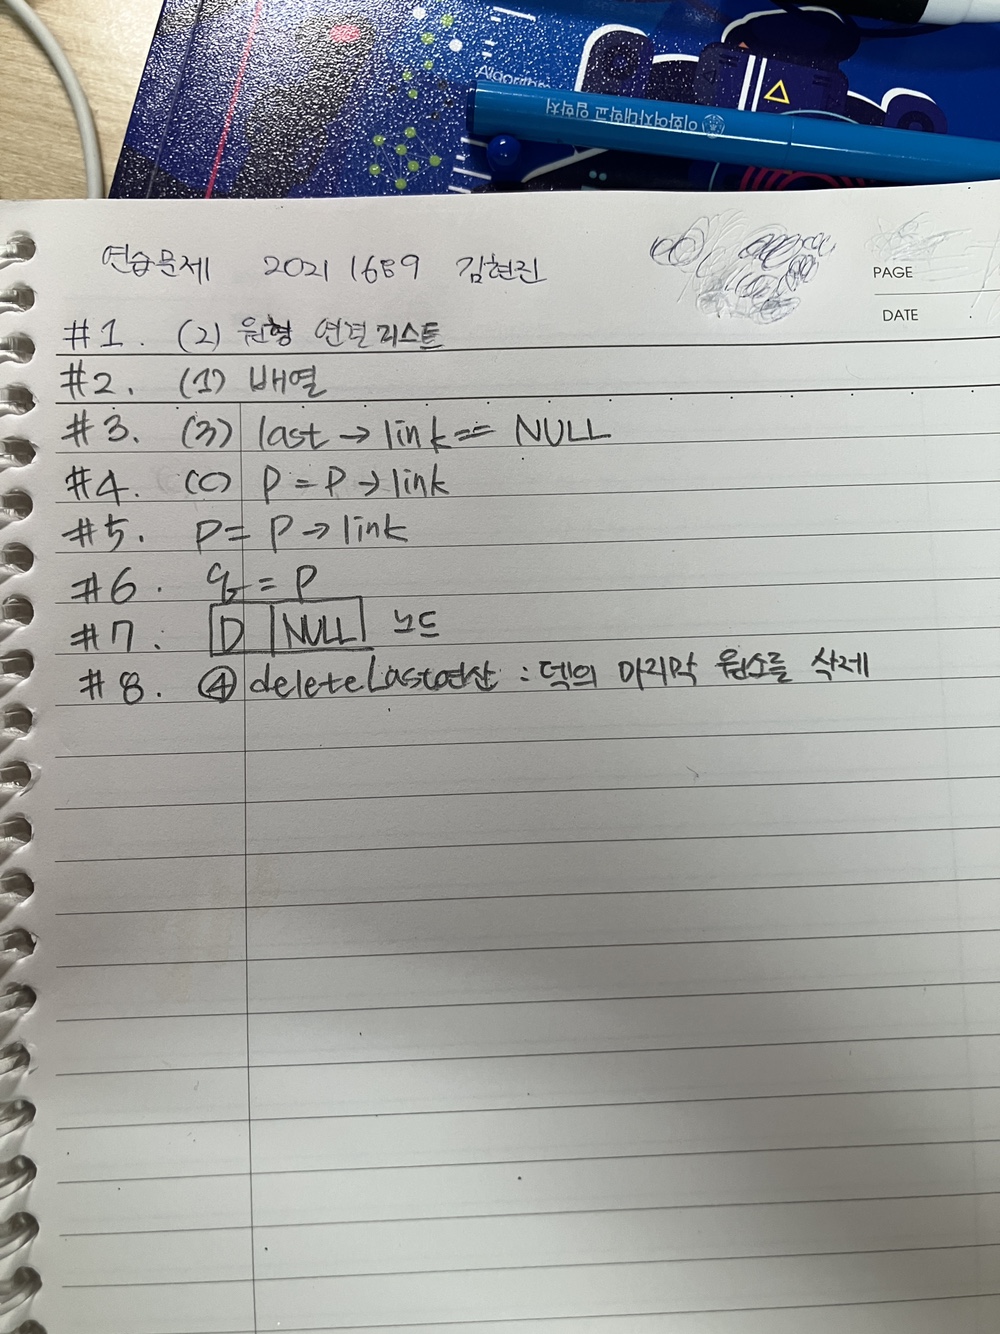 Algorithm
이화여자대학교 입학처
연습문제 2021 1689 김현진
PAGE
DATE
#1. (2) 원형 연결 리스트
#2. (1) 배열
#3. (3) last → link == NULL
#4. (c) P = P → link
#5. P = P → link
#6. q = P
#7. D NULL 노드
#8. ④ deleteLast연산 : 덱의 마지막 원소를 삭제